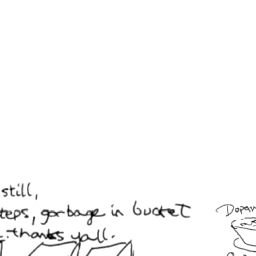 still,
teps, garbage in bucket
thanks yall.
Dopam